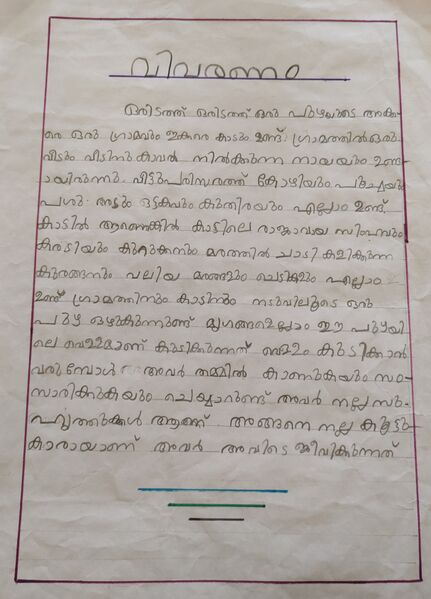 വിവരണം
ഒരിടത്ത് ഒരിടത്ത് ഒരു പുഴയുടെ അക്ക-
രെ ഒരു ഗ്രാമവും ഇക്കരെ കാടും ഉണ്ട്. ഗ്രാമത്തിൽ ഒരു
വീടും വീടിനു കാവൽ നിൽക്കുന്ന നായയും ഉണ്ട-
ായിരുന്നു. വീട്ടുപരിസരത്ത് കോഴിയും പൂച്ചയും
പശു ആടും ഒട്ടകവും കുതിരയും എല്ലാം ഉണ്ട്.
കാടിൽ ആണെങ്കിൽ കാട്ടിലെ രാജാവായ സിംഹവും
കരടിയും കുറുക്കനും മരത്തിൽ ചാടി കളിക്കുന്ന
കുരങ്ങനും വലിയ മരങ്ങളും ചെടികളും എല്ലാം
ഉണ്ട് ഗ്രാമത്തിനും കാടിനും നടുവിലൂടെ ഒരു
പുഴ ഒഴുകുന്നുണ്ട് മൃഗങ്ങളെല്ലാം ഈ പുഴയി
ലെ വെള്ളമാണ് കുടിക്കുന്നത് വെള്ളം കുടിക്കാൻ
വരുമ്പോൾ അവർ തമ്മിൽ കാണുകയും സം-
സാരിക്കുകയും ചെയ്യാറുണ്ട് അവർ നല്ല സു-
ഹൃത്തുക്കൾ ആണ് അങ്ങനെ നല്ല കൂട്ടു-
കാരായാണ് അവർ അവിടെ ജീവിക്കുന്നത്